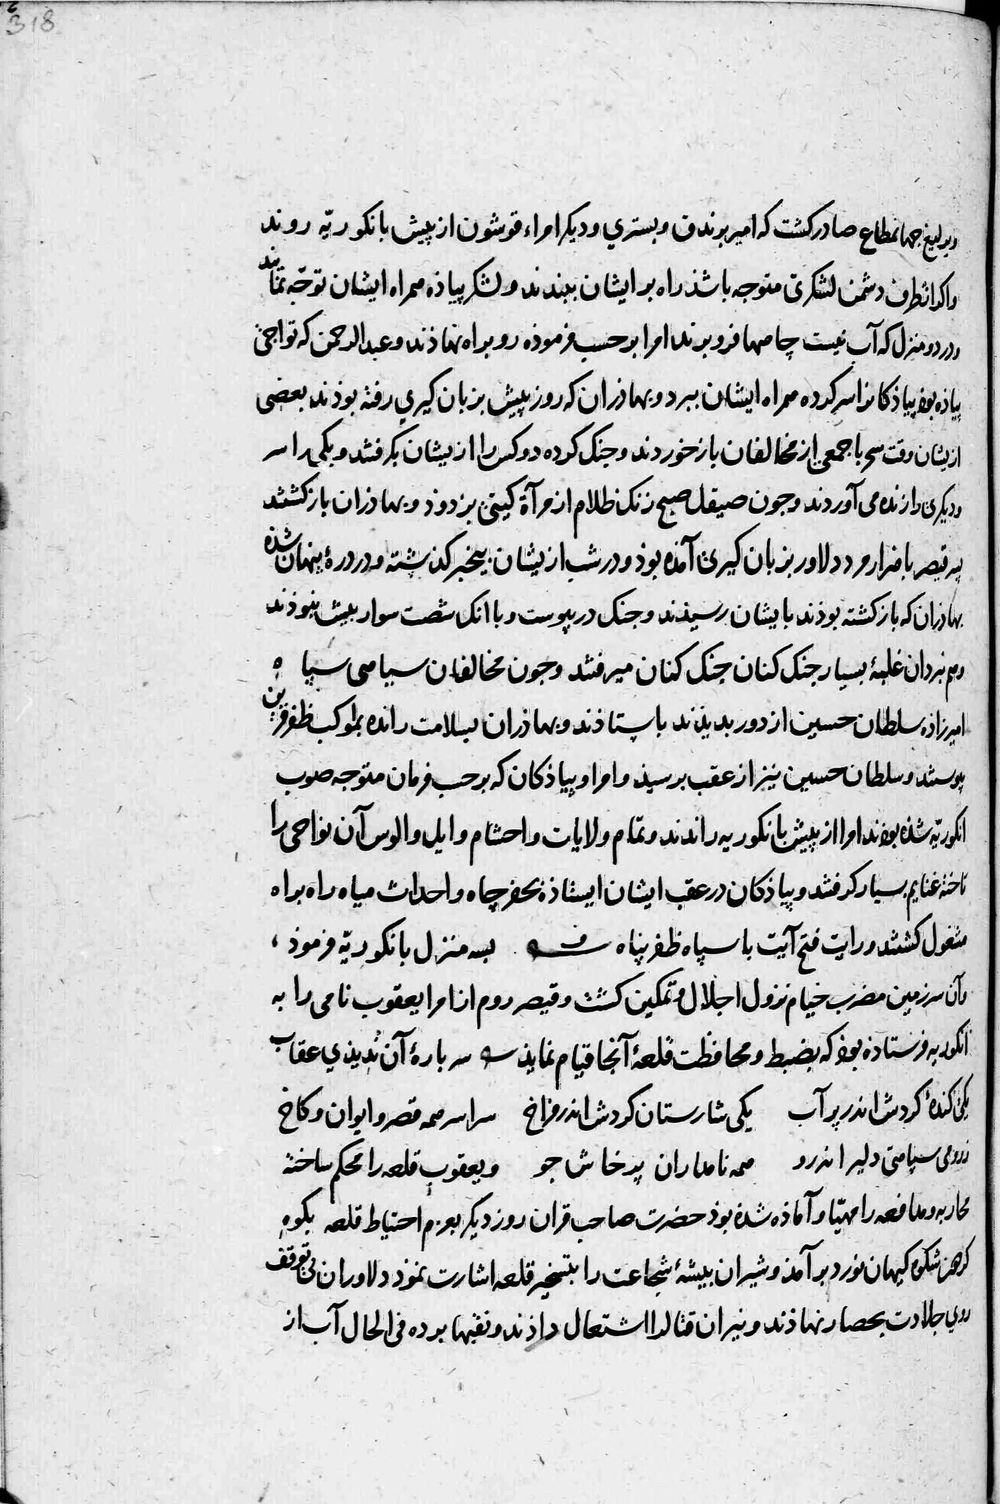 318
ویرلیغ جهانمطاع صادر کشت که امیر برندق و بستري و دیکر امراء قوشون از پیش بانکوریّه روند
واکر از طرف دشمن لشکری متوجه باشذ راه بر ایشان ببندند ولشکر پیاذه همراه ایشان توجّه نمایند
ودر دو منزل که آب نیست چاهها فرو برند امرا بر حسب فرموذه رو براه نهاذند وعبدالرحمن که تواجی
پیاذه بوذ پیاذکانرا سر کرده همراه ایشان ببرد وبهاذران که روز پیش بزبان کیري رفته بوذند بعضی
ازیشان وقت سحر با جمعی از مخالفان باز خوردند وجنک کرده دو کس را ازیشان بکرفتند ویکی را سر
ودیکری را زنده می آوردند وجون صیقل صبح زنک ظلام از مرآة کیتی بزدوذ وبهاذران باز کشتند
پسر قیصر با هزار مرد دلاور بزبان کیری آمذه بوذ ودر شب ازیشان بیخبر کذشته ودر درهٔ پنهان شذه
بهاذران که باز کشته بوذند بایشان رسیذند وجنک در پیوست وبا انک شصت سوار بیش نبوذند
وهم نبردان غلبهٔ بسیار جنک کنان جنک کنان میرفتند وجون مخالفان سیاهی سپاه
امیرزاذه سلطان حسین از دور بدیذند باستاذند وبهاذران بسلامت رانده بموکب ظفر قرین
پیوستند وسلطان حسین نیز از عقب برسیذ وامرا وپیاذکان که بر حسب فرمان متوجه صوب
انکوریّه شذه بوذند امرا از پیش بانکوریه راندند وتمام ولایات واحشام وایل والوس آن نواحی را
تاخته غنایم بسیار کرفتند وپیاذکان در عقب ایشان ایستاذه بحفر چاه واحداث میاه راه براه
مشغول کشتند ورایت فتح آیت با سپاه ظفر پناه بسه منزل بانکوریّه فرموذ،
وآن سرزمین مضرب خیام نزول اجلال وتمکین کشت وقیصر روم از امرا یعقوب نامی را به
انکوریه فرستاذه بوذ که بضبط ومحافظت قلعهٔ آنجا قیام نمایذ سر بارهٔ آن ندیذي عقاب
یکی کندهٔ کردش اندر پر آب یکی شارستان کردش اندر فراخ سراسر همه قصر وایوان وکاخ
زرومی سپاهی دلیر اندرو همه نامداران پرخاش جو ویعقوب قلعه را محکم ساخته
محاربه ومدافعه را مهیّا وآماذه شذه بوذ حضرت صاحب قران روز دیکر بعزم احتیاط قلعه بکوه
کوهن شکوه کیهان نورد بر آمذ وشیران بیشهٔ شجاعت را بتسخیر قلعه اشارت نموذ دلاوران بی توقف
روي جلادت بحصار نهاذند ونیران قتال را اشتعال داذند ونقبها برده فی الحال آب از